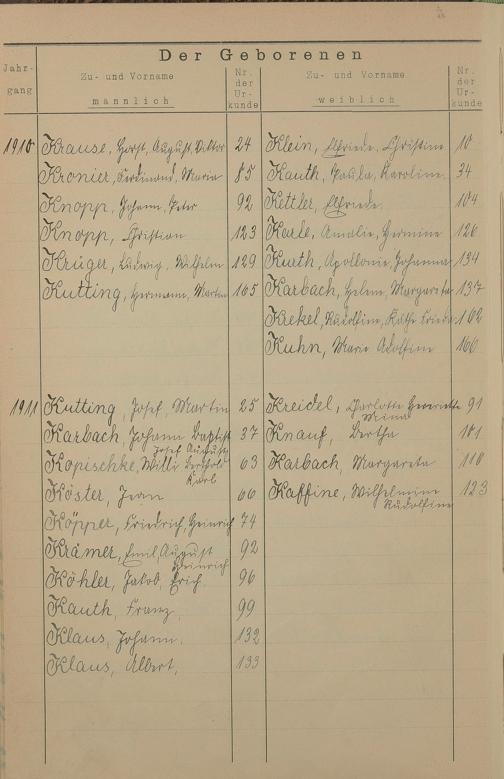 Der Geborenen
Jahr-
gang
Zu- und Vorname
männlich
Nr.
der
Ur-
kunde
Zu- und Vorname
weiblich
Nr.
der
Ur-
kunde
1910 Krause, Horst, August, Viktor 24 Klein, Elfriede, Christine 10
Kronier, Ferdinand, Maria 85 Kauth, Paula, Karoline 34
Knopp, Johann, Peter 92 Kettler, Elfriede 104
Knopp, Christian 123 Karle, Amalie, Hermine 126
Krüger, Ludwig, Wilhelm 129 Kurth, Apollonie, Johanna 134
Kutting, Hermann, Martin 165 Karbach, Helene, Margareta 137
Krekel, Käthe 162
Kuhn, Marie Adolfine 166
1911 Kutting, Josef, Martin 25 Kreidel, Charlotte Henriette 91
Minna
Karbach, Johann Baptist 37 Knauf, Bertha 101
Josef August
Kopischke, Willi Berthold 63 Karbach, Margareta 110
Karl
Köster, 66 Kaffine, Wilhelmine 123
Rudolfine
Köpper, Friedrich, Heinrich 74
Krämer, Emil, August 92
Heinrich
Köhler, Jakob, Erich 96
Kauth, Franz, 99
Klaus, Johann 132
Klaus, Albert, 133